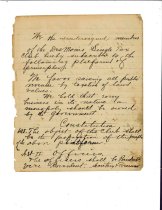 We the undersigned members
of the Des Moines Single Tax
Club hereby subscribe to the
following platform of
principles
We favor raising all public
revenue by control of land
values.
We hold that every
business in its nature be
monopoly should be owned
by the government
Constitution
The object of the club shall
be the propagation of the principles
of the above platform
Art II Officers
The officers shall be President
Vice President, Secretary Treasurer